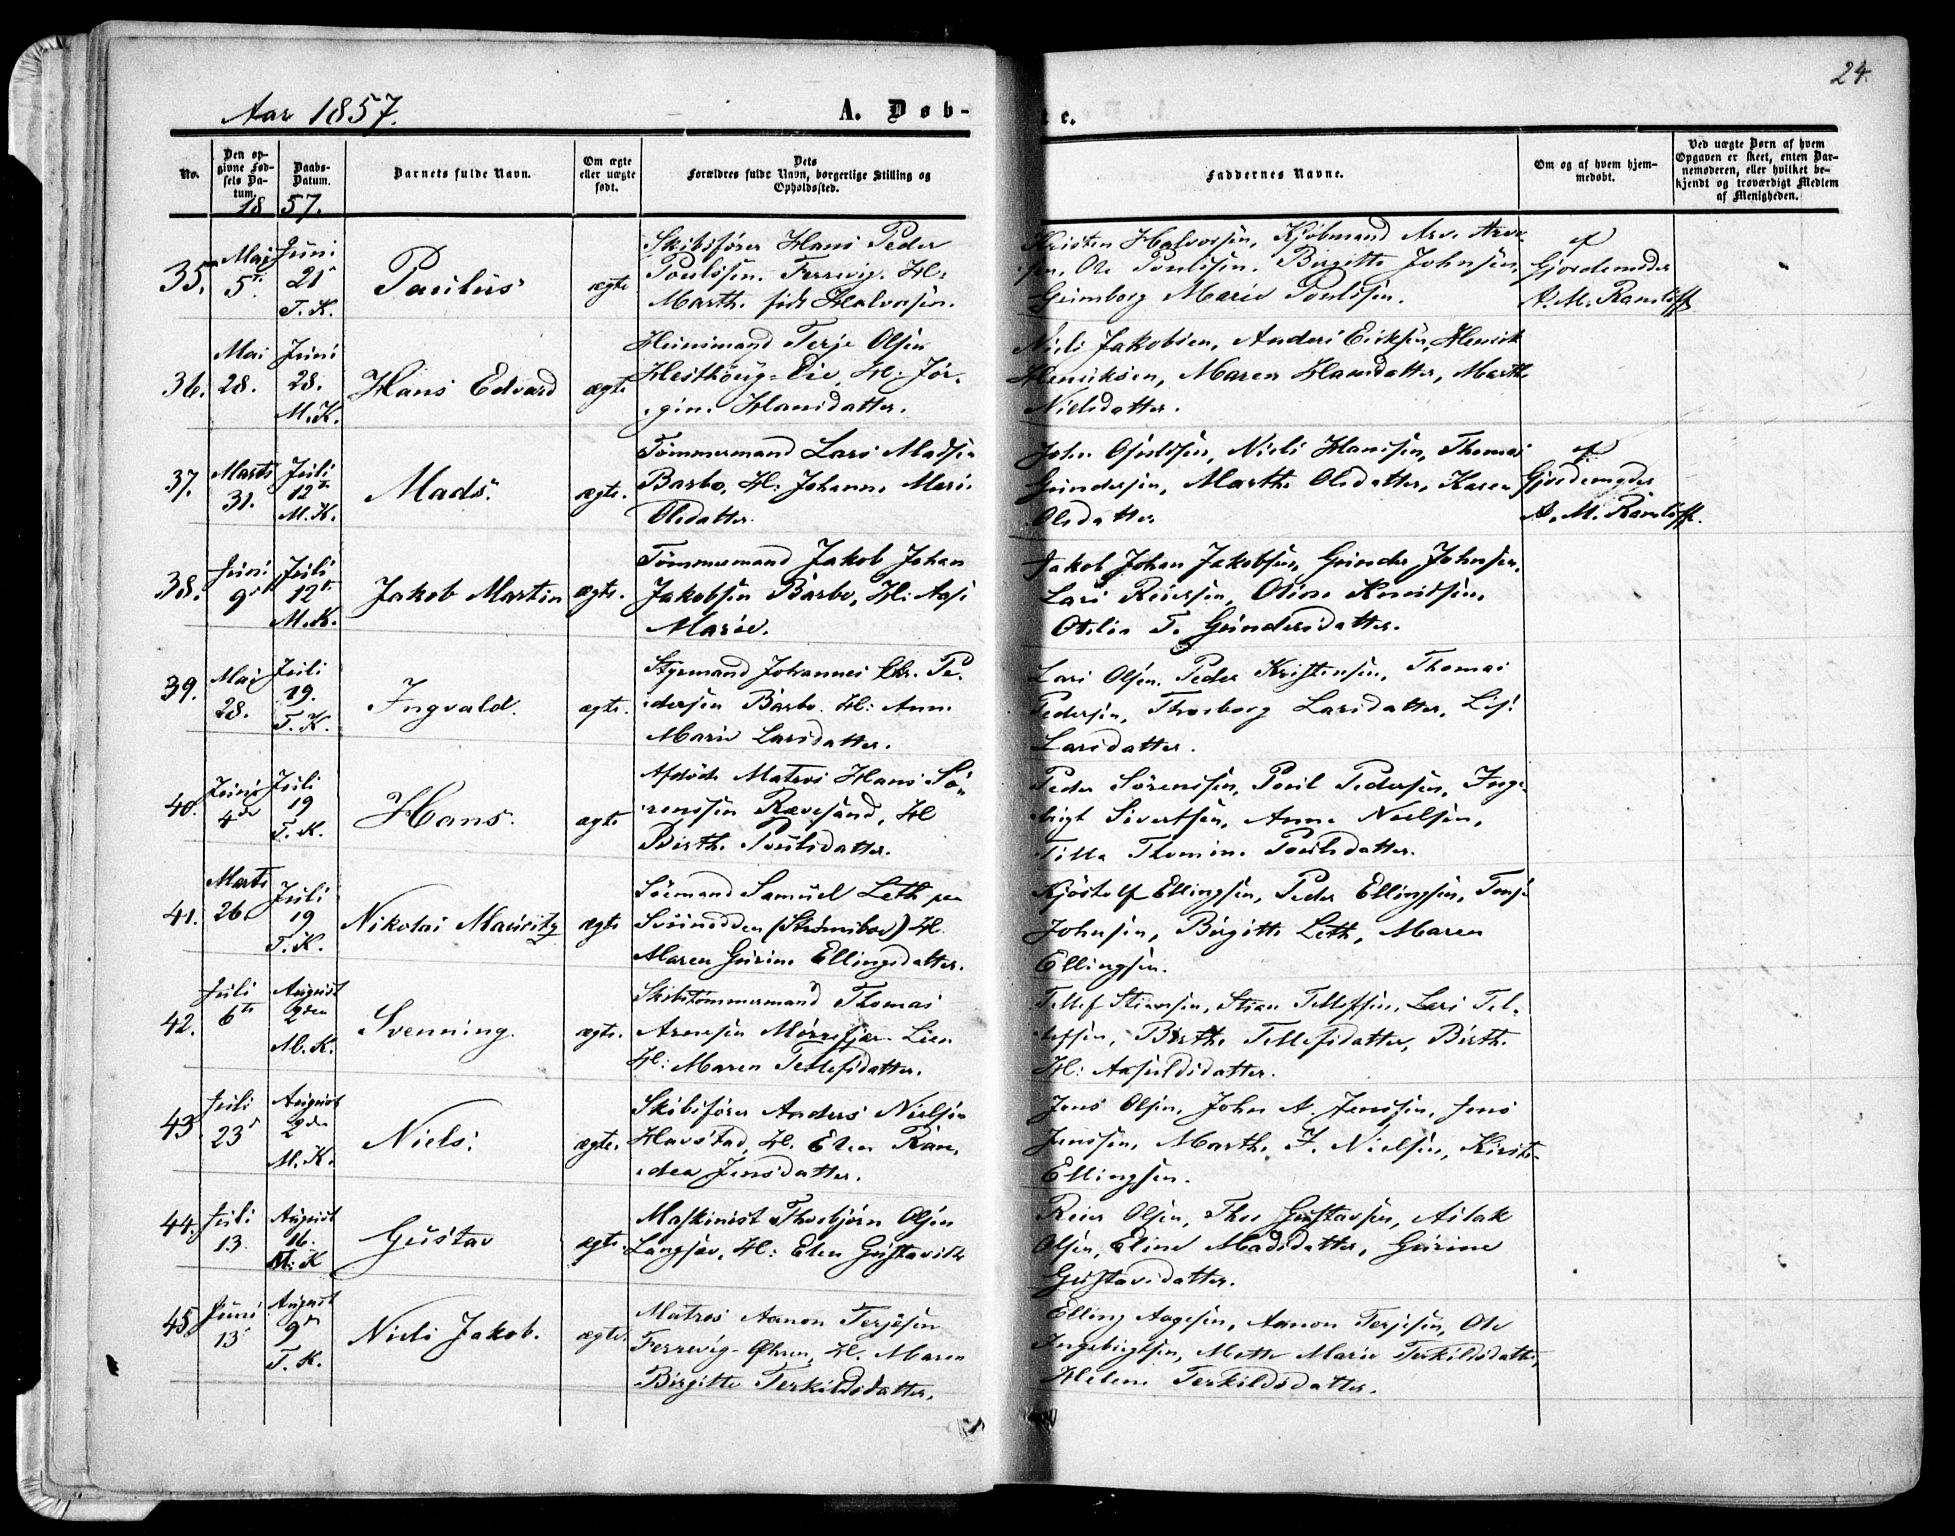 24.
Aar 1857.
A. Døb-
e.
No.
Den op-
givne Fød-
sels Da-
tum.
Daabs-
Datum.
Barnets fulde Navn.
Om ægte
eller uægte
født.
Dets
Forældres fulde Navn, borgerlige Stilling og
Opholdssted.
Faddernes Navne.
Om og af hvem hjem-
medøbt.
Ved uægte Børn af hvem
Opgaven er skeet, enten Bar-
nemoderen, eller hvilket be-
kjendt og troværdigt Medlem
af Menigheden.
18 57.
35. Mai 5te Juni 21 T. K. Paulus ægte
Skibsfører Hans Peder
Poulssen. Ferrevig. H:
Marth. Halvorsen.
Kristen Halvorsen, Kjøbmand
Ole Poulssen. Birgitte Johnsen,
Gunborg Marie Poulssen.
af
Gjordemoder
A. M. Ramløff
36. Mai 28. Juni 28. M. K. Hans Edvard ægte
Huusmand Terje Olsen
Hesthoug-Eie, H: Jør-
gine Hansdatter.
Niels Jakobsen, Anders Eriksen, Henrik
Henriksen, Maren Hansdatter, Marthe
Nielsdatter.
37. Marts 31. Juli 12te M. K. Mads. ægte.
Tømmermand Lars Madsen
Barbo, H: Johanne Marie
Olsdatter.
John Osuldsen, Niels Hanssen, Thomas
Gundersen, Marthe Olsdatter, Karen
Olsdatter
af
Gjordemoder
A. M. Ramløff.
38. Juni 9de Juli 12te M. K. Jakob Martin ægte.
Tømmermand Jakob Johan
Jakobsen Barbo, H: Aase
Marie.
Jakob Johan Jakobsen, Gunder Johnsen,
Lars Reiersen, Oline Knudsen,
Otilie T. Gundersdatter.
39. Mai 28. Juli 19. T. K. Ingvald. ægte.
Styrmand Johannes Chr. Pe-
dersen Barbo. H: Anne
Marie Larsdatter.
Lars Olsen, Peder Kristensen, Thomas
Pedersen, Thorborg Larsdatter, Lise
Larsdatter.
40. Juni 4de Juli 19 T. K. Hans. ægte
Afdøde Matros Hans Sø-
renssen Rævesand, H
Birthe Poulsdatter.
Peder Sørenssen, Poul Pedersen, Inge-
brigt Sivertsen, Anne Nielsen,
Tilla Thomine Poulsdatter.
41. Marts 26. Juli 19 T. K. Nikolai Mauritz ægte
Sømand Samuel Leth paa
(Strømsbo) H.
Maren Gurine Ellingsdatter.
Kjøstolf Ellingsen, Peder Ellingsen, Terje
Johnsen, Birgitte Leth, Maren
Ellingsen.
42. Juli 6te August 2den M. K. Svenning. ægte.
Skibstømmermand Thomas
Arnesen Mørrefjær Lien
H: Maren Tellefsdatter.
Tellef Stiansen, Stian Tellefsen, Lars Tel-
lefsen, Birthe Tellefsdatter, Birthe
H: Aasuldsdatter.
43. Juli 23d August 2den M. K. Niels. ægte.
Skibsfører Anders Nielsen
Havstad, H. Elen Ran-
dea Jensdatter.
Jens Olsen, John A. Jenssen, Jens
Jenssen, Marthe J. Nielsen, Kirste
Ellingsen.
44. Juli 13. August 16. M. K Gustav ægte
Maskinist Thorbjørn Olsen
Langsæv, H: Elen Gustavsdtr
Reier Olsen, Thor Gustavsen, Aslak
Olsen, Eline Madsdatter, Gurine
Gustavsdatter.
45. Juni 13 August 9de T. K. Niels Jakob. ægte.
Matros Aanon Terjesen
Ferrevig-Øhren, H. Maren
Birgitte Terkildsdatter.
Elling Aagesen, Aanon Terjesen, Ole
Ingebrigtsen, Mette Marie Terkildsdatter,
Helene Terkildsdatter.